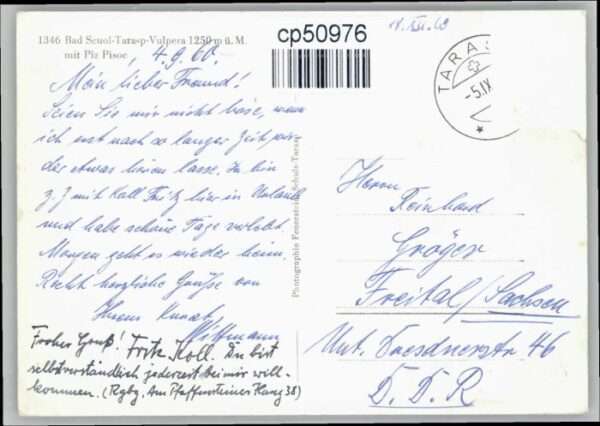 1346 Bad Scuol-Tarasp-Vulpera 1250 m ü. M.
mit Piz Pisoc
cp50976
4.9.60.
Mein lieber Freund!
Seien Sie mir nicht böse, wenn
ich erst nach so langer Zeit wie-
der etwas hören lasse. Ich bin
z. Z. mit Koll. Fritz hier in Urlaub
und habe schöne Tage verlebt.
Morgen geht es wieder heim.
Recht herzliche Grüße von
Ihrem
Wittmann
Froher Gruß! Fritz Koll. Du bist
selbstverständlich jederzeit bei mir will-
kommen. (Rgbg. Am Pfaffensteiner Hang 38)
Photographie Feuerstein, Schuls-Tarasp
TARAS
-5.IX
Herrn
Reinhard
Gröger
Freital/Sachsen
Unt. Dresdnerstr 46
D. D. R